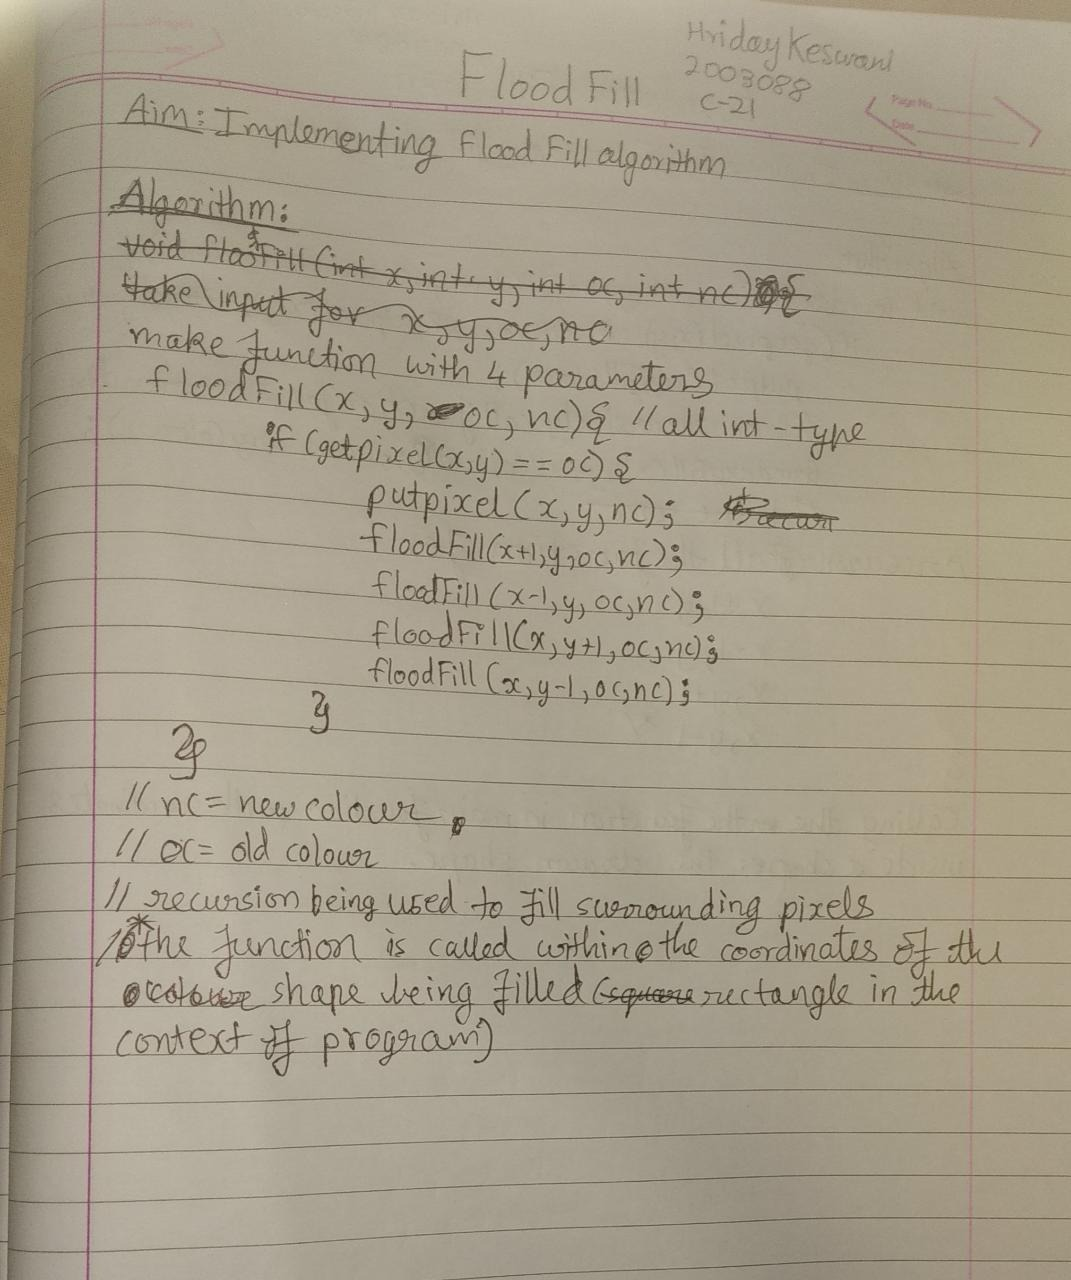 Hriday Keswani
2003088
C-21
Flood Fill
Page No.
Date
Aim: Implementing Flood Fill algorithm
Algorithm:
void floodFill (int x, int y, int oc, int nc) {
take input for x, y, oc, nc
make function with 4 parameters
floodFill (x, y, oc, nc) { // all int-type
if (getpixel(x,y) == oc) {
putpixel (x, y, nc);
floodFill(x+1, y, oc, nc);
floodFill (x-1, y, oc, nc);
floodFill(x, y+1, oc, nc);
floodFill (x, y-1, oc, nc);
}
}
// nc = new colour
// oc = old colour
// recursion being used to fill surrounding pixels
/* The function is called within the coordinates of the
colour shape being filled (square rectangle in the
context of program)